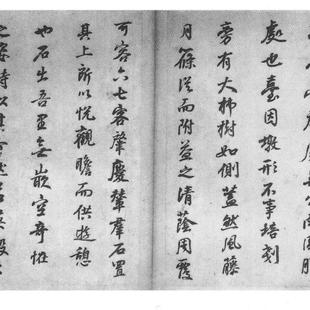 處也臺因墩形不事培刻
旁有大柿樹如側蓋然風藤
月篠從而附益之清蔭周覆
可容六七客肇慶輦羣石置
其上所以悅觀瞻而供遊憩
也石出吾里無嵌空奇怪
之姿特以其